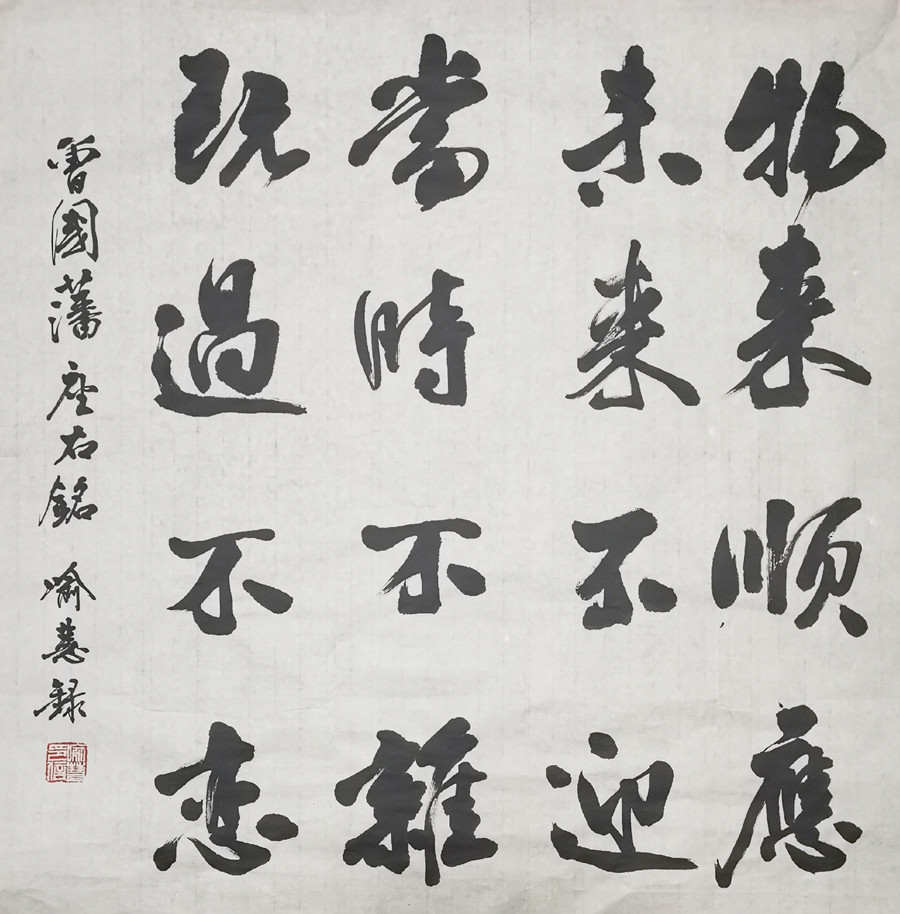 物来顺應
未来不迎
當時不雜
既過不恋
曾國藩座右銘 喻慧録